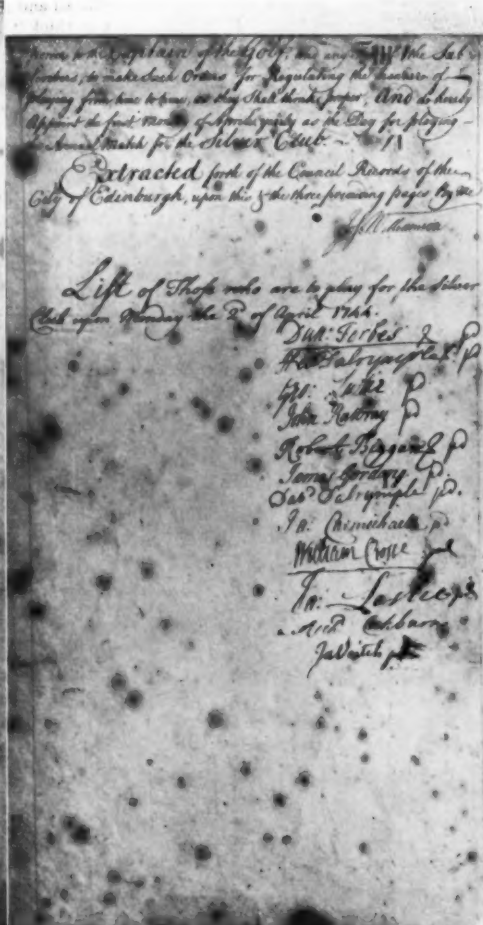 power to the Captain of the Golf, and any of the Sub
scribers, to make such Orders for Regulating the manner of
playing from time to time, as they shall think proper, And do hereby
Appoint the first Monday of Aprile yearly as the Day for playing
Annual Match for the Silver Club.
Extracted forth of the Council Records of the
City of Edinburgh, upon this & the three preceeding pages By me
List of Those who are to play for the Silver
Club upon Monday the 2d of April 1744.
Dun: Forbes pd
Hew Dalrymple pd
Geo: Suttie pd
John Rattray pd
Robert Biggar pd
James Gordon pd.
Davd Dalrymple pd.
Ja: Carmichaell pd
William Crosse pd
Ja: Leslie pd
Archd Cockburn
Ja Veitch pd